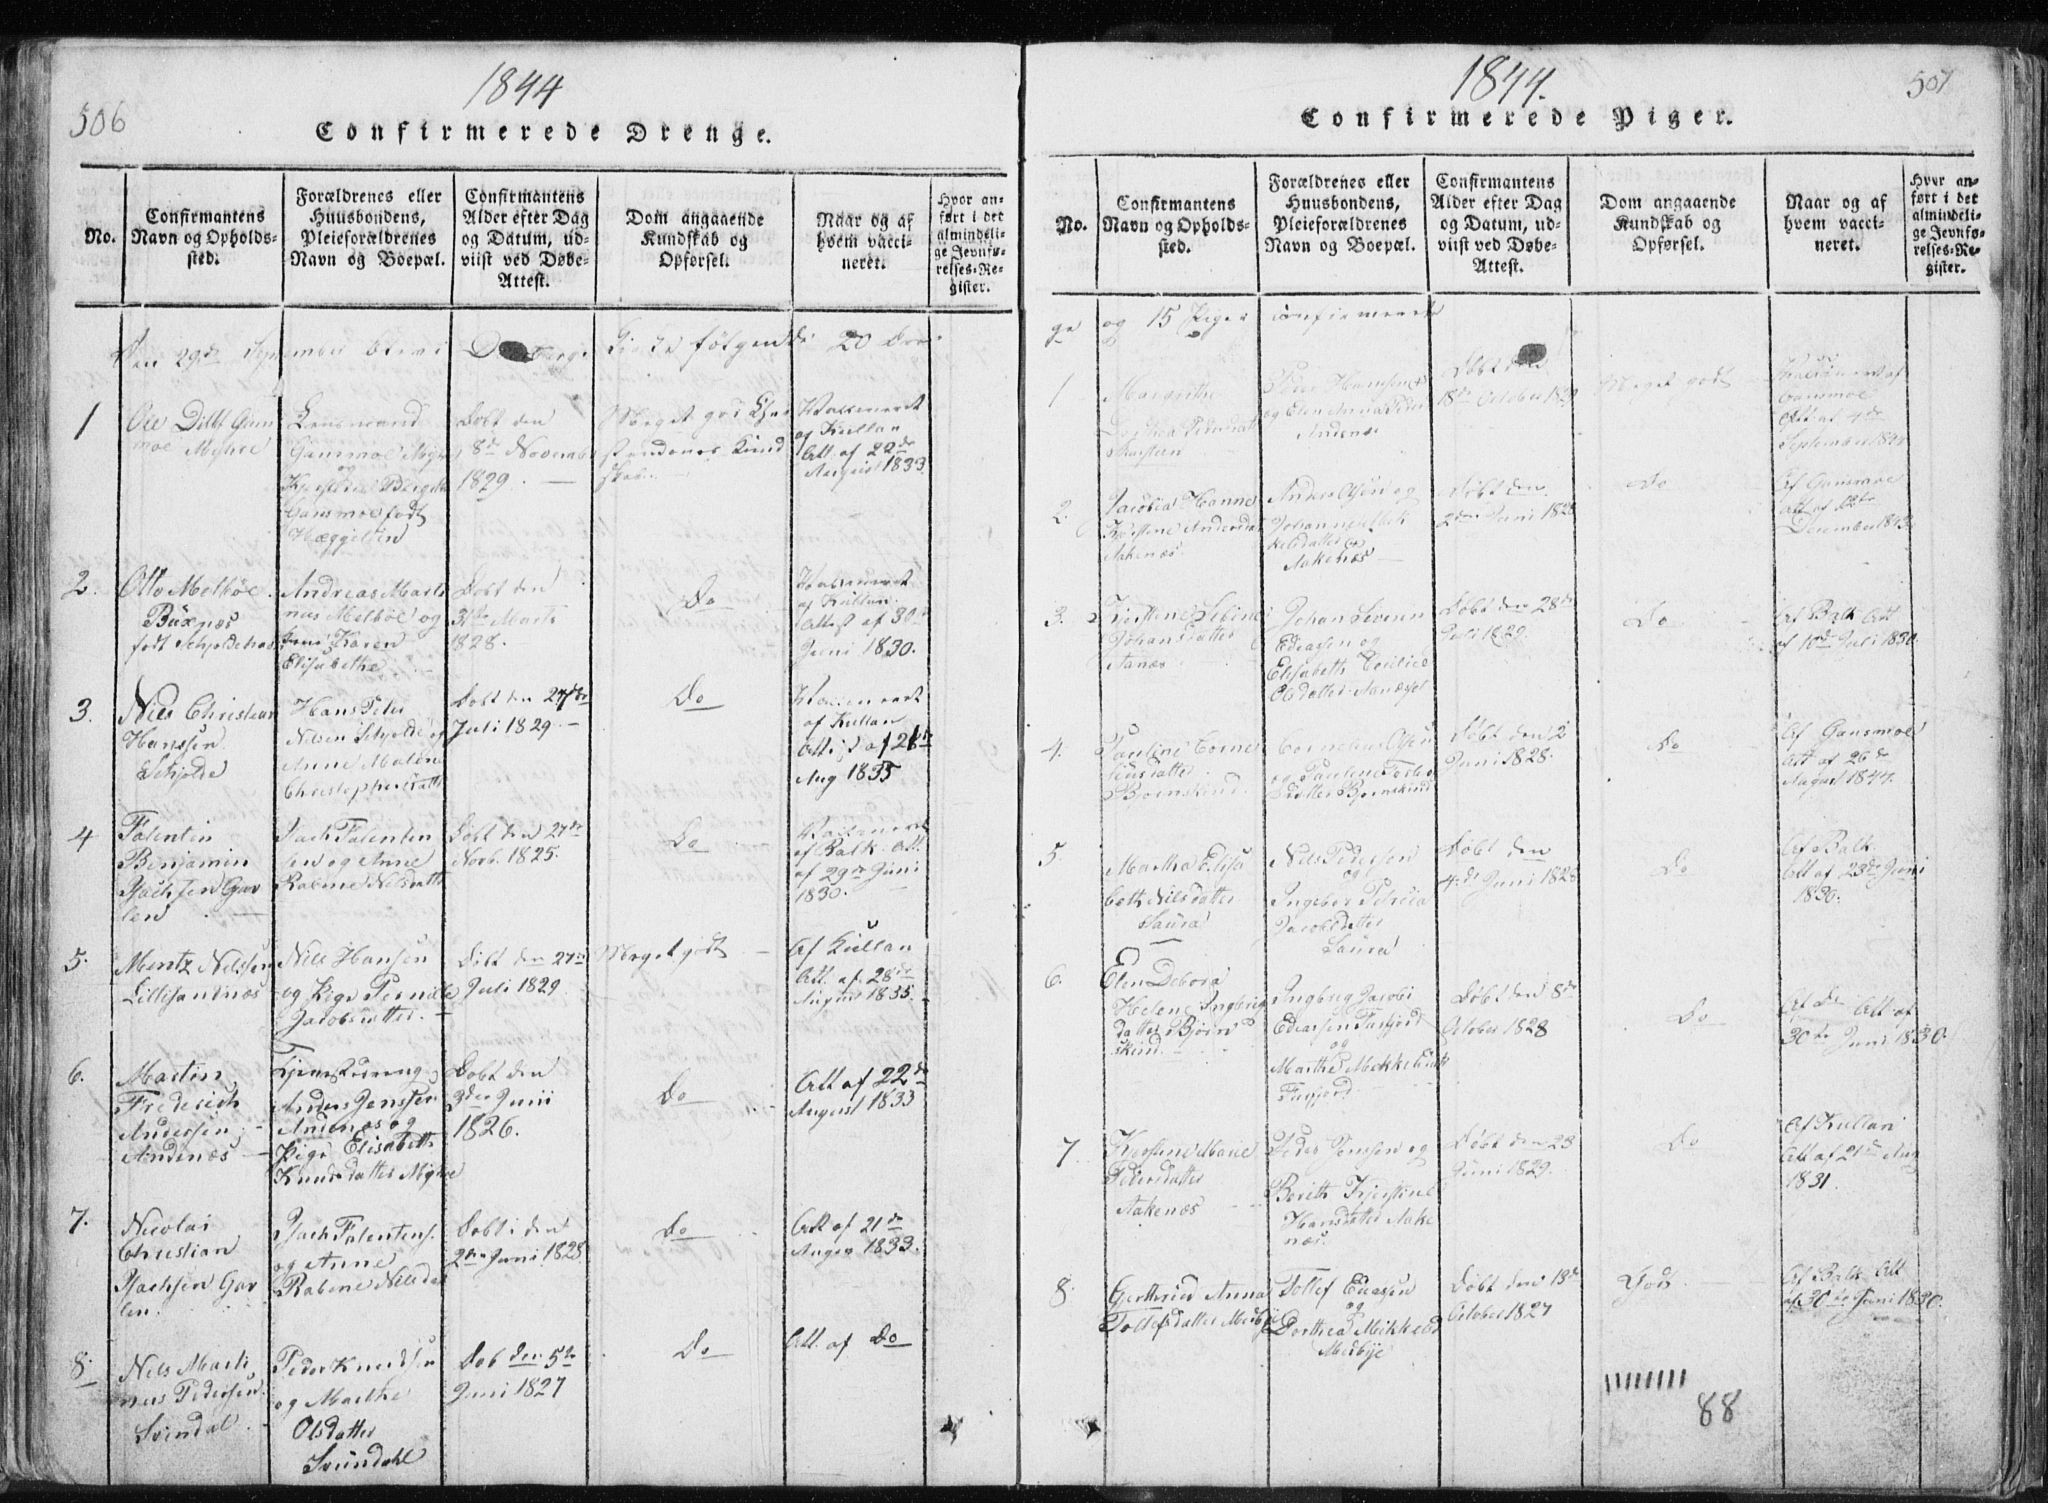 506
1844
Confirmerede Drenge.
No.
Confirmantens
Navn og Opholds-
sted.
Forældrenes eller
Huusbondens,
Pleieforældrenes
Navn og Boepæl.
Confirmantens
Alder efter Dag
og Datum, ud-
viist ved Døbe-
Attest.
Dom angaaende
Kundskab og
Opførsel.
Naar og af
hvem vacci-
neret.
Hvor an-
ført i det
almindeli-
ge Jevnfø-
relses-Re-
gister.
Den 29de September blev i Kirke følgende 20 Dren
1
Ole Ditlt Gans
moe Myhre
Lensmand
Gansmoe Myhre
og
Gansmoe født
Hæggelsen
Døbt den
8de November
1829.
Meget god Chri
stendoms Kund
skab.
Vakcineret
af Kullan
Att. af 22de
August 1833
2.
Otto Melböe
Buxnæs
født Schjoldehas
Andreas Marti
nus Melböe og
Karen
Elisabethe
Døbt den
31te Marts
1828.
Do
Vakcineret
af Kullan
Attest af 30te
Juni 1830.
3.
Niels Christian
Hanssen
Schjolde
Hans Peter
Nilsen Schjolde og
Anne Malene
Christophersdatter
Døbt den 27de
Juli 1829.
Do
Vaccineret
af Kullan
Attest af 21de
Aug 1835
4
Falentin
Benjamin
Isachsen Gav
len
Isach Falentin
sen og Anne
Rabene Nilsdatt
Døbt den 27de
Novb. 1825.
Do
Vakcineret
af Balk. Att.
af 29de Juni
1830.
5.
Mentz Nilssen
Lillisandnæs
Nils Hansen
og Pige Pernille
Jacobsdatter.
Døbt den 27de
Juli 1829
Meget godt
Af Kullan
Att. af 28de
August 1835.
6.
Martin
Frederich
Andersen
Andenæs
Tjenstedreng
Anders Jenssen
Andenæs og
Pige Elisabeth
Knudsdatter Myhre
Døbt den
3die Junii
1826.
Do
Att af 22de
August 1833
7.
Nicolai
Christian
Isachsen Gav
len.
Isach Falentens.
og Anne
Rabene Nilsdat
Døbt i den
2den Juni 1828
Do
Att af 21de
August 1833.
8.
Nils Marti
nus Pedersen
Svendal
Peder Knudsen
og Marthe
Olsdatter
Svendahl
Døb den 5te
Juni 1827
Do
Att. af Do
1844.
507
Confirmerede Piger.
No.
Confirmantens
Navn og Opholds-
sted.
Forældrenes eller
Huusbondens,
Pleieforældrenes
Navn og Boepæl.
Confirmantens
Alder efter Dag
og Datum, ud-
viist ved Døbe-
Attest.
Dom angaaende
Kundskab og
Opførsel.
Naar og af
hvem vacci-
neret.
Hvor an-
ført i det
almindeli-
ge Jevnfø-
relses-Re-
gister.
ge og 15 Piger confirmerede
1
Margrethe
Dorthea Pedersdatt
Peder Hanssen
og Elen Anna Peders
Andenæs
Døbt den
18de October 1829
Meget godt
Vakcineret af
Gansmoe
Att af 4de
September 1844
2.
Jacobia Hanne
Kirstene Andersdat
Aakenæs
Anders Olsen og
Johanne
kelsdatter
Aakenæs
Døbt den
2den Juni 1828
Do
Af Gansmoe
Att af 12te
December 1843
3.
Kjerstene Sibine
Johansdatter
Aanæs
Johan Severin
Edeassen og
Elisabeth Cecilie
Olsdatter Aanæs
Døbt den 28de
Juli 1829.
Do
Af Balk Att
af 10de Juli 1830.
4.
Pauline Corne
liusdatter
Bjørnskind.
Cornelius Olsen
og Paulene Tosten
sdatter Bjørnskind
Døbt den 2
Juni 1828.
Do
Af Gansmoe
Att af 26de
August 1844.
5.
Martha Elisa
beth Nilsdatter
Saura
Nils Pedersen
og
Ingebor Petrica
Jacobsdatter
Saura
Døbt den
4de Juni 1828
Do
Af Balk.
Att af 23de Juni
1830.
6.
Elen Debora
Helene Ingbrig
datter Bjørn
skind.
Ingbrig Jacobi
Edeassen Fagfjord
og
Marthe Mekkelsdatt
Fagfjord
Døbt den 8de
October 1828
Do
Af Do Att af
30te Juni 1830.
7
Kjerstine Marie
Pedersdatter
Aakenæs
Peder Jenssen og
Bereth Kjerstine
Hansdatter Aake
næs.
Døbt den 23
Juni 1829.
Do
Af Kullan
Att af 21de Aug
1831.
8.
Gertruid Anna
Tollefsdatter Medbye
Tollef Edeassen
og
Dorthea Mikkelsd
Medbye
Døbt den 18de
October 1827
Godt.
Af Balk Att
af 30te Juni 1830.
88